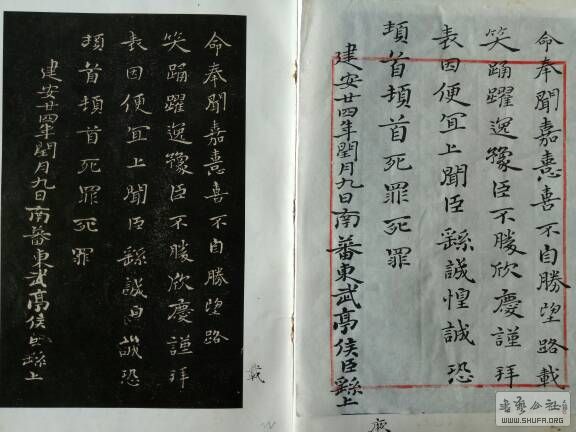 命奉聞嘉憙喜不自勝望路載
笑踊躍逸豫臣不勝欣慶謹拜
表因便宜上聞臣繇誠惶誠恐
頓首頓首死罪死罪
建安廿四年閏月九日南蕃東武亭侯臣繇上
命奉聞嘉憙喜不自勝望路
笑踊躍逸豫臣不勝欣慶謹拜
表因便宜上聞臣繇誠惶誠恐
頓首頓首死罪死罪
建安廿四年閏月九日南蕃東武亭侯臣繇上
載
书艺公社
WWW.SHUFA.ORG